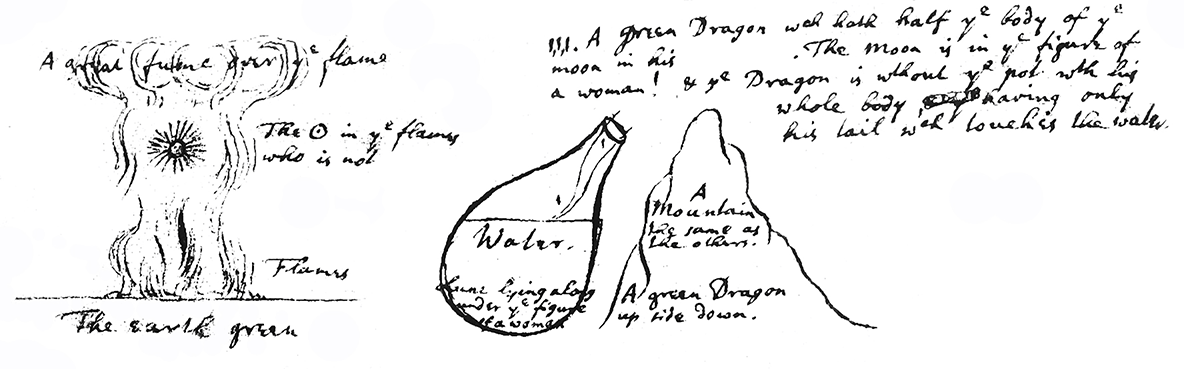 A great fume over yᵉ flame
The ☉ in yᵉ flames
who is not
Flames
The earth green
III. A green Dragon wᶜʰ hath half yᵉ body of yᵉ
moon in his The Moon is in yᵉ figure of
a woman! & yᵉ Dragon is wthout yᵉ pot wth his
whole body having only
his tail wᶜʰ touches the water.
Water.
Lune lying along
under yᵉ figure
of a woman
A
Mountain
the same as
the others.
A green Dragon
up side down.